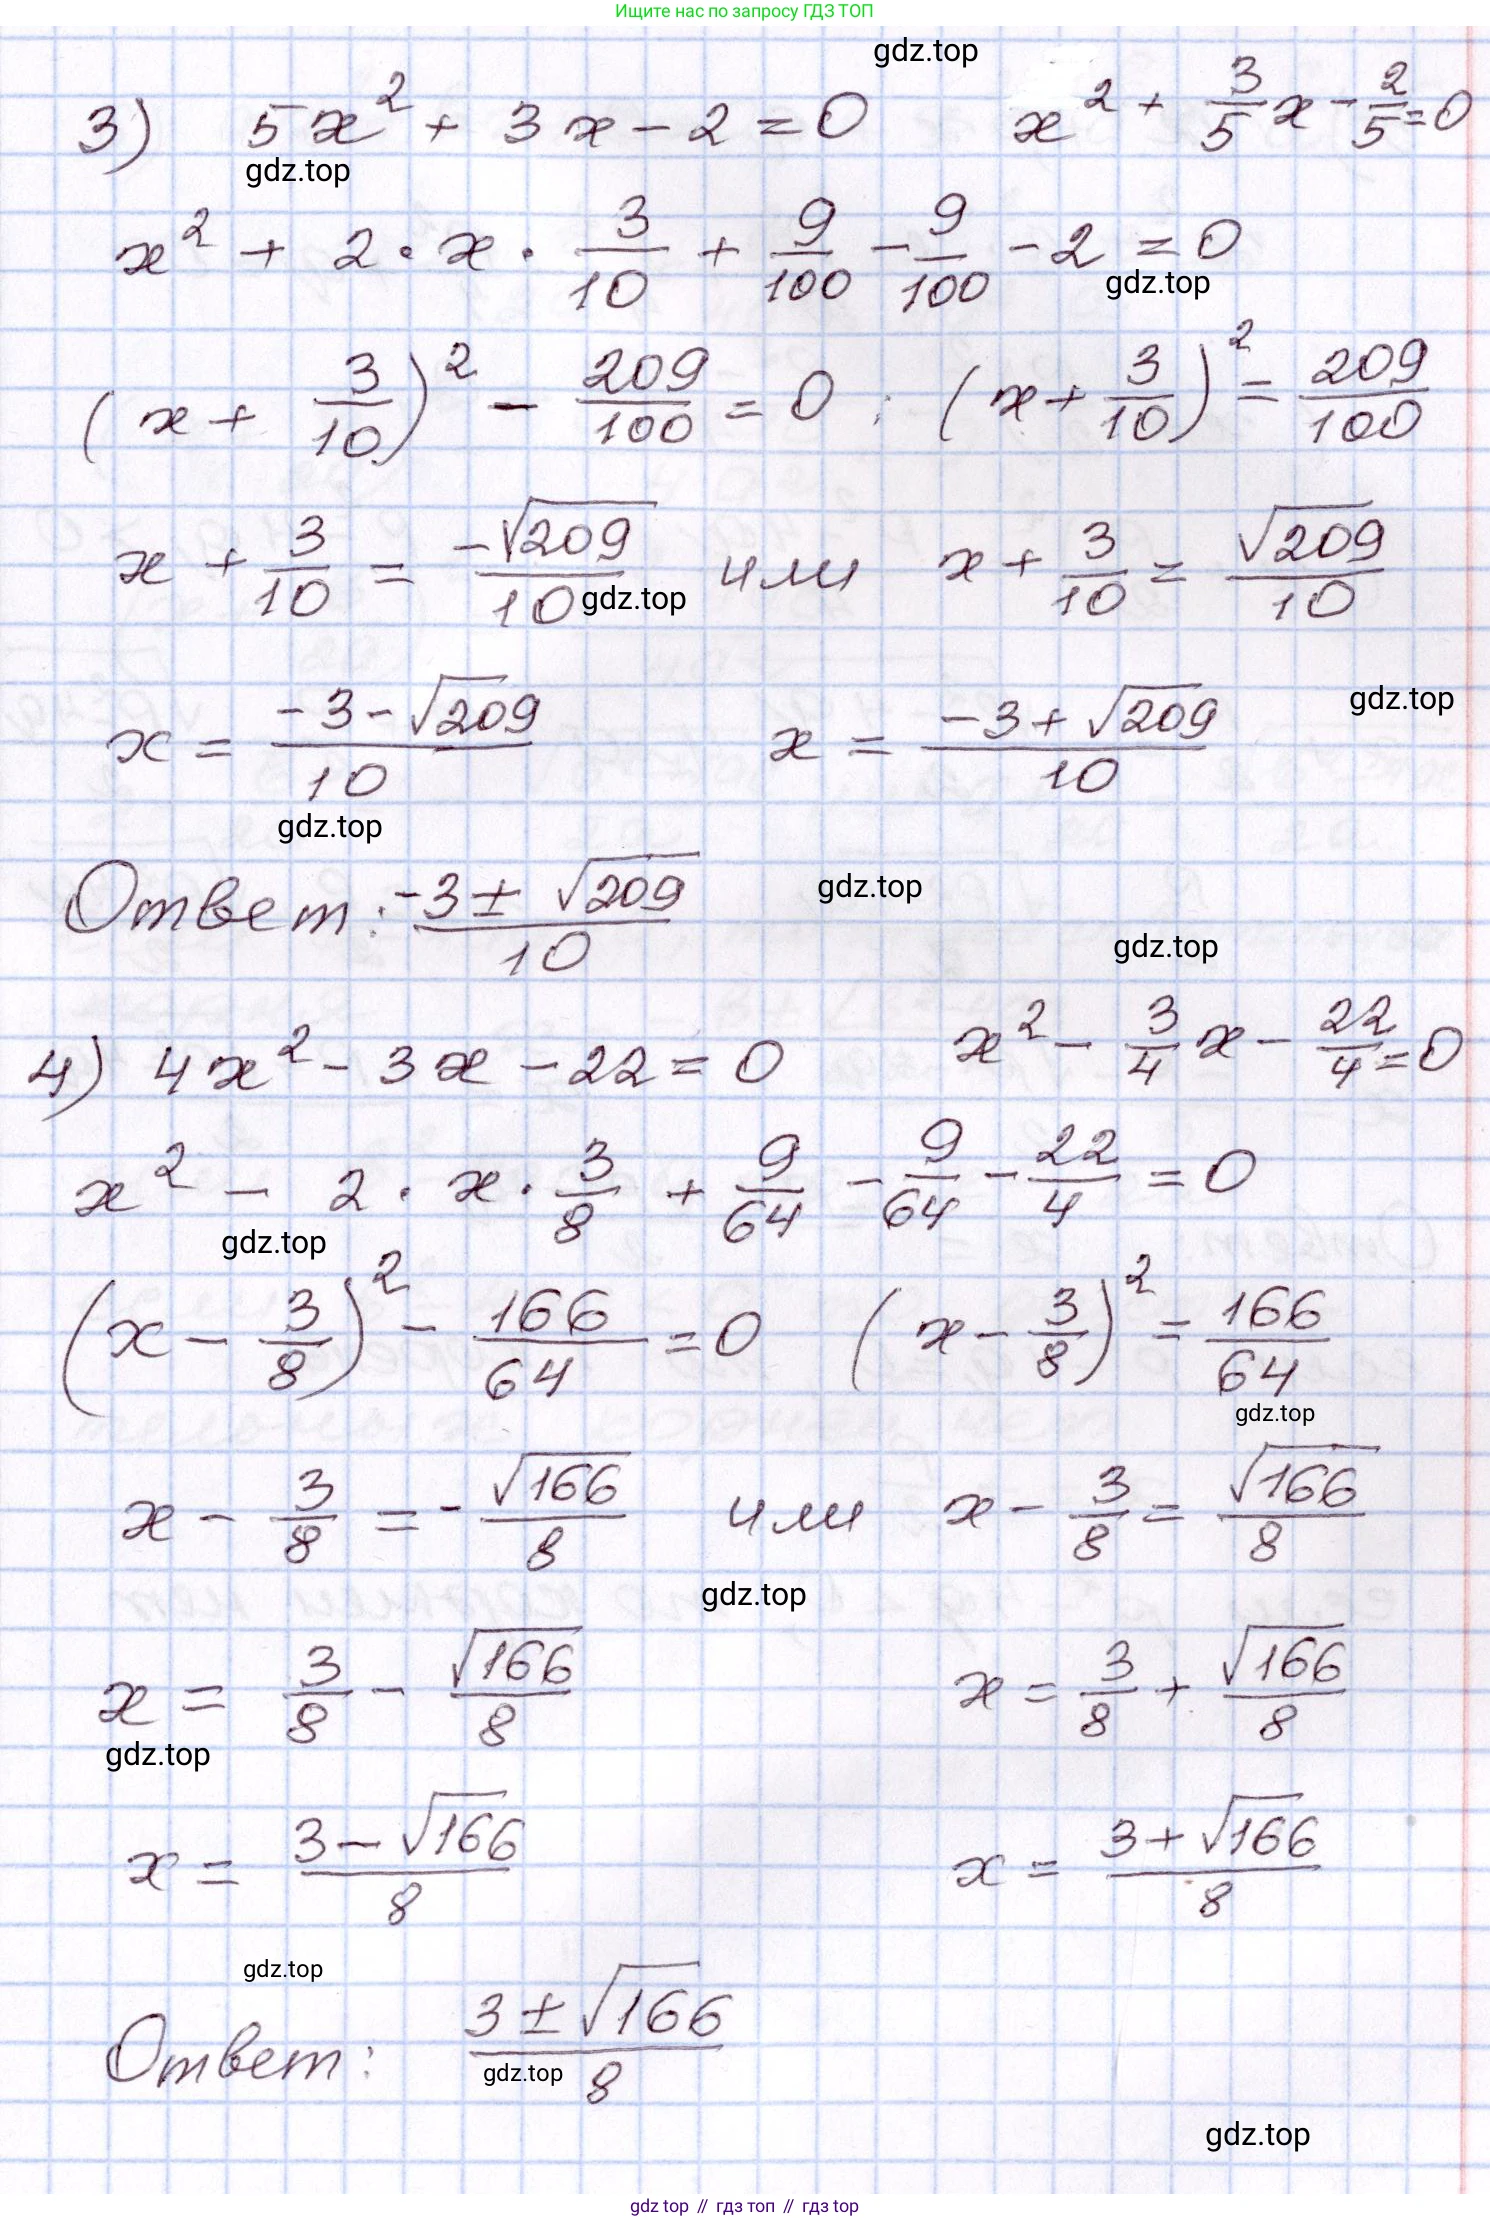 Ищите нас по запросу ГДЗ ТОП
gdz.top
3) 5x² + 3x - 2 = 0    x² + 3/5 x - 2/5 = 0
gdz.top
x² + 2 · x · 3/10 + 9/100 - 9/100 - 2 = 0
gdz.top
(x + 3/10)² - 209/100 = 0 ; (x + 3/10)² = 209/100
x + 3/10 = -√209/10 или x + 3/10 = √209/10
gdz.top
x = (-3 - √209)/10    x = (-3 + √209)/10
gdz.top
gdz.top
Ответ: (-3 ± √209)/10
gdz.top
gdz.top
4) 4x² - 3x - 22 = 0    x² - 3/4 x - 22/4 = 0
x² - 2 · x · 3/8 + 9/64 - 9/64 - 22/4 = 0
gdz.top
(x - 3/8)² - 166/64 = 0    (x - 3/8)² = 166/64
gdz.top
x - 3/8 = - √166/8 или x - 3/8 = √166/8
gdz.top
x = 3/8 - √166/8    x = 3/8 + √166/8
gdz.top
x = (3 - √166)/8    x = (3 + √166)/8
gdz.top
Ответ: (3 ± √166)/8
gdz.top
gdz.top
gdz top // гдз топ // gdz top